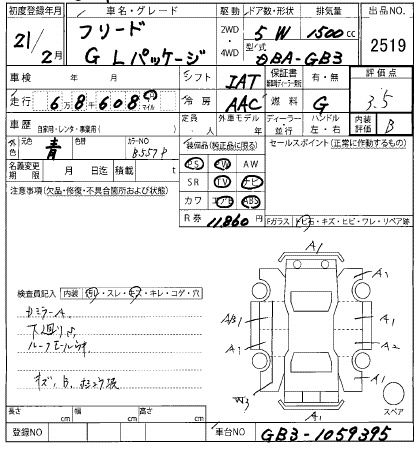 初度登録年月 車名・グレード 駆動 ドア数・形状 排気量 出品NO.
21/2月 フリード 2WD・4WD 5 W 1500cc 2519
G Lパッケージ 型式 DBA-GB3
車検 年 月 シフト IAT 保証書 有・無 評価点
走行 6万8千608 km マイル 冷房 AAC 燃料 G 3.5
車歴 自家用・レンタ・事業用( ) 定員 人 外車モデル 年 ディーラー・並行 ハンドル 左・右 内装評価 B
外色 元色 青 色替 カラーNO B557P 装備品(純正品に限る) セールスポイント(正常に作動するもの)
名義変更期限 月 日迄 積載 t PS PW AW
注意事項(欠品・修復・不具合箇所および状態) SR TV ナビ
カワ エアB ABS
R券 11,860円 Fガラス トビ石・キズ・ヒビ・ワレ・リペア跡
A1
検査員記入 内装 汚レ・スレ・キズ・キレ・コゲ・穴
A1 A1
A/B1 A1
A1 A2
キズ、B、
W3 A1
スペア
長さ cm 幅 cm 高さ cm
登録NO 車台NO GB3-1059395